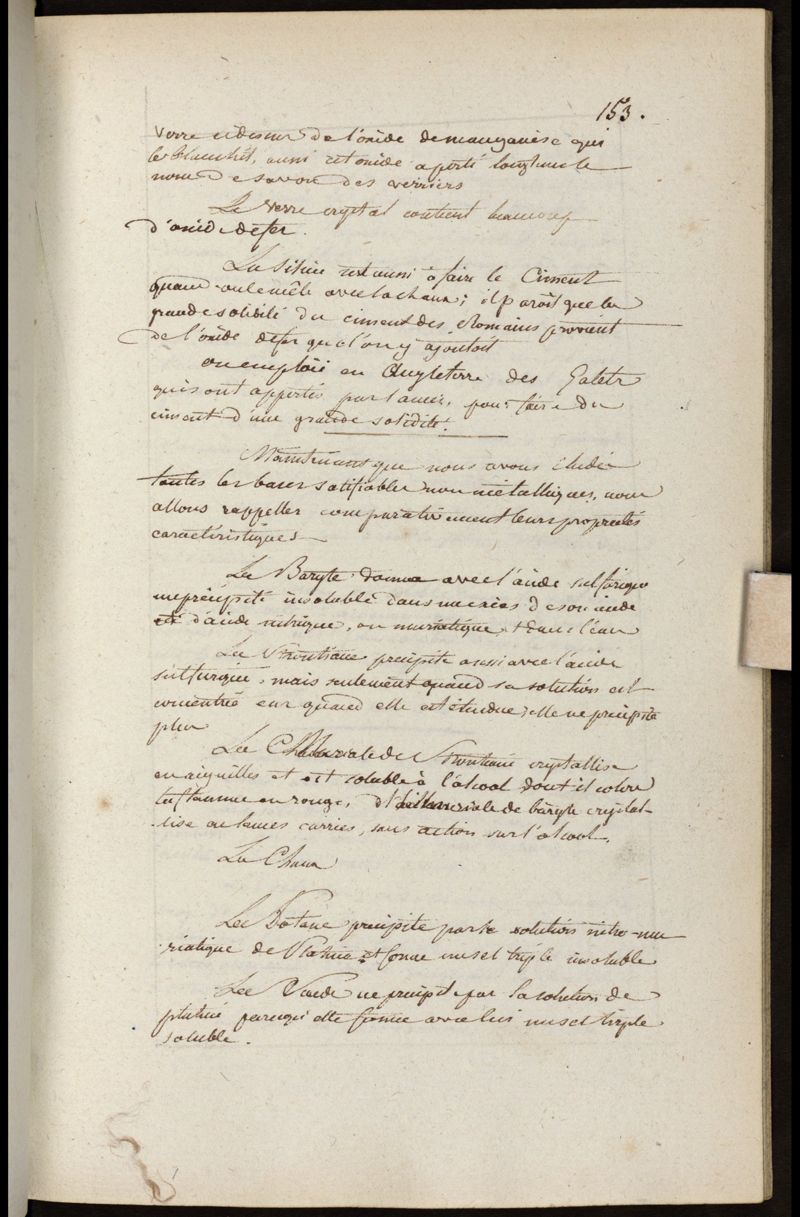 153.
verre au dessus de l'oxide de manganèse qui
le blanchit, aussi cet oxide a porté longtems le
nom de savon des verriers
Le verre crystal contient beaucoup
d'oxide de fer.
La silice sert aussi à faire le Ciment
quand on le mêle avec la chaux; il paroit que la
grande solidité du ciment des Romains provient
de l'oxide de fer que l'on y ajoutoit
on emploie en Angleterre des Galets
qui sont apportés par la mer, pour faire du
ciment d'une grande solidité.
Maintenant que nous avons étudié
toutes les bases salifiables non métalliques, nous
allons rappeller comparativement leurs propriétés
caractéristiques
La Baryte donne avec l'acide sulfurique
un précipité insoluble dans un excès de son acide
d'acide nitrique, ou muriatique et dans l'eau
La Strontiane précipite aussi avec l'acide
sulfurique, mais seulement quand sa solution est
concentrée car quand elle est étendue, elle ne précipite
plus
Le muriate de Strontiane crystallise
en aiguilles et est soluble à l'alcool dont il colore
la flamme en rouge, le muriate de baryte crystal-
-lise en lames carrées, sans action sur l'alcool.
La Chaux
La Potasse précipite par la solution nitro-mu
riatique de Platine et forme un sel triple insoluble
La Soude ne précipite par la solution de
platine parcequ'elle forme avec lui un sel triple
soluble.